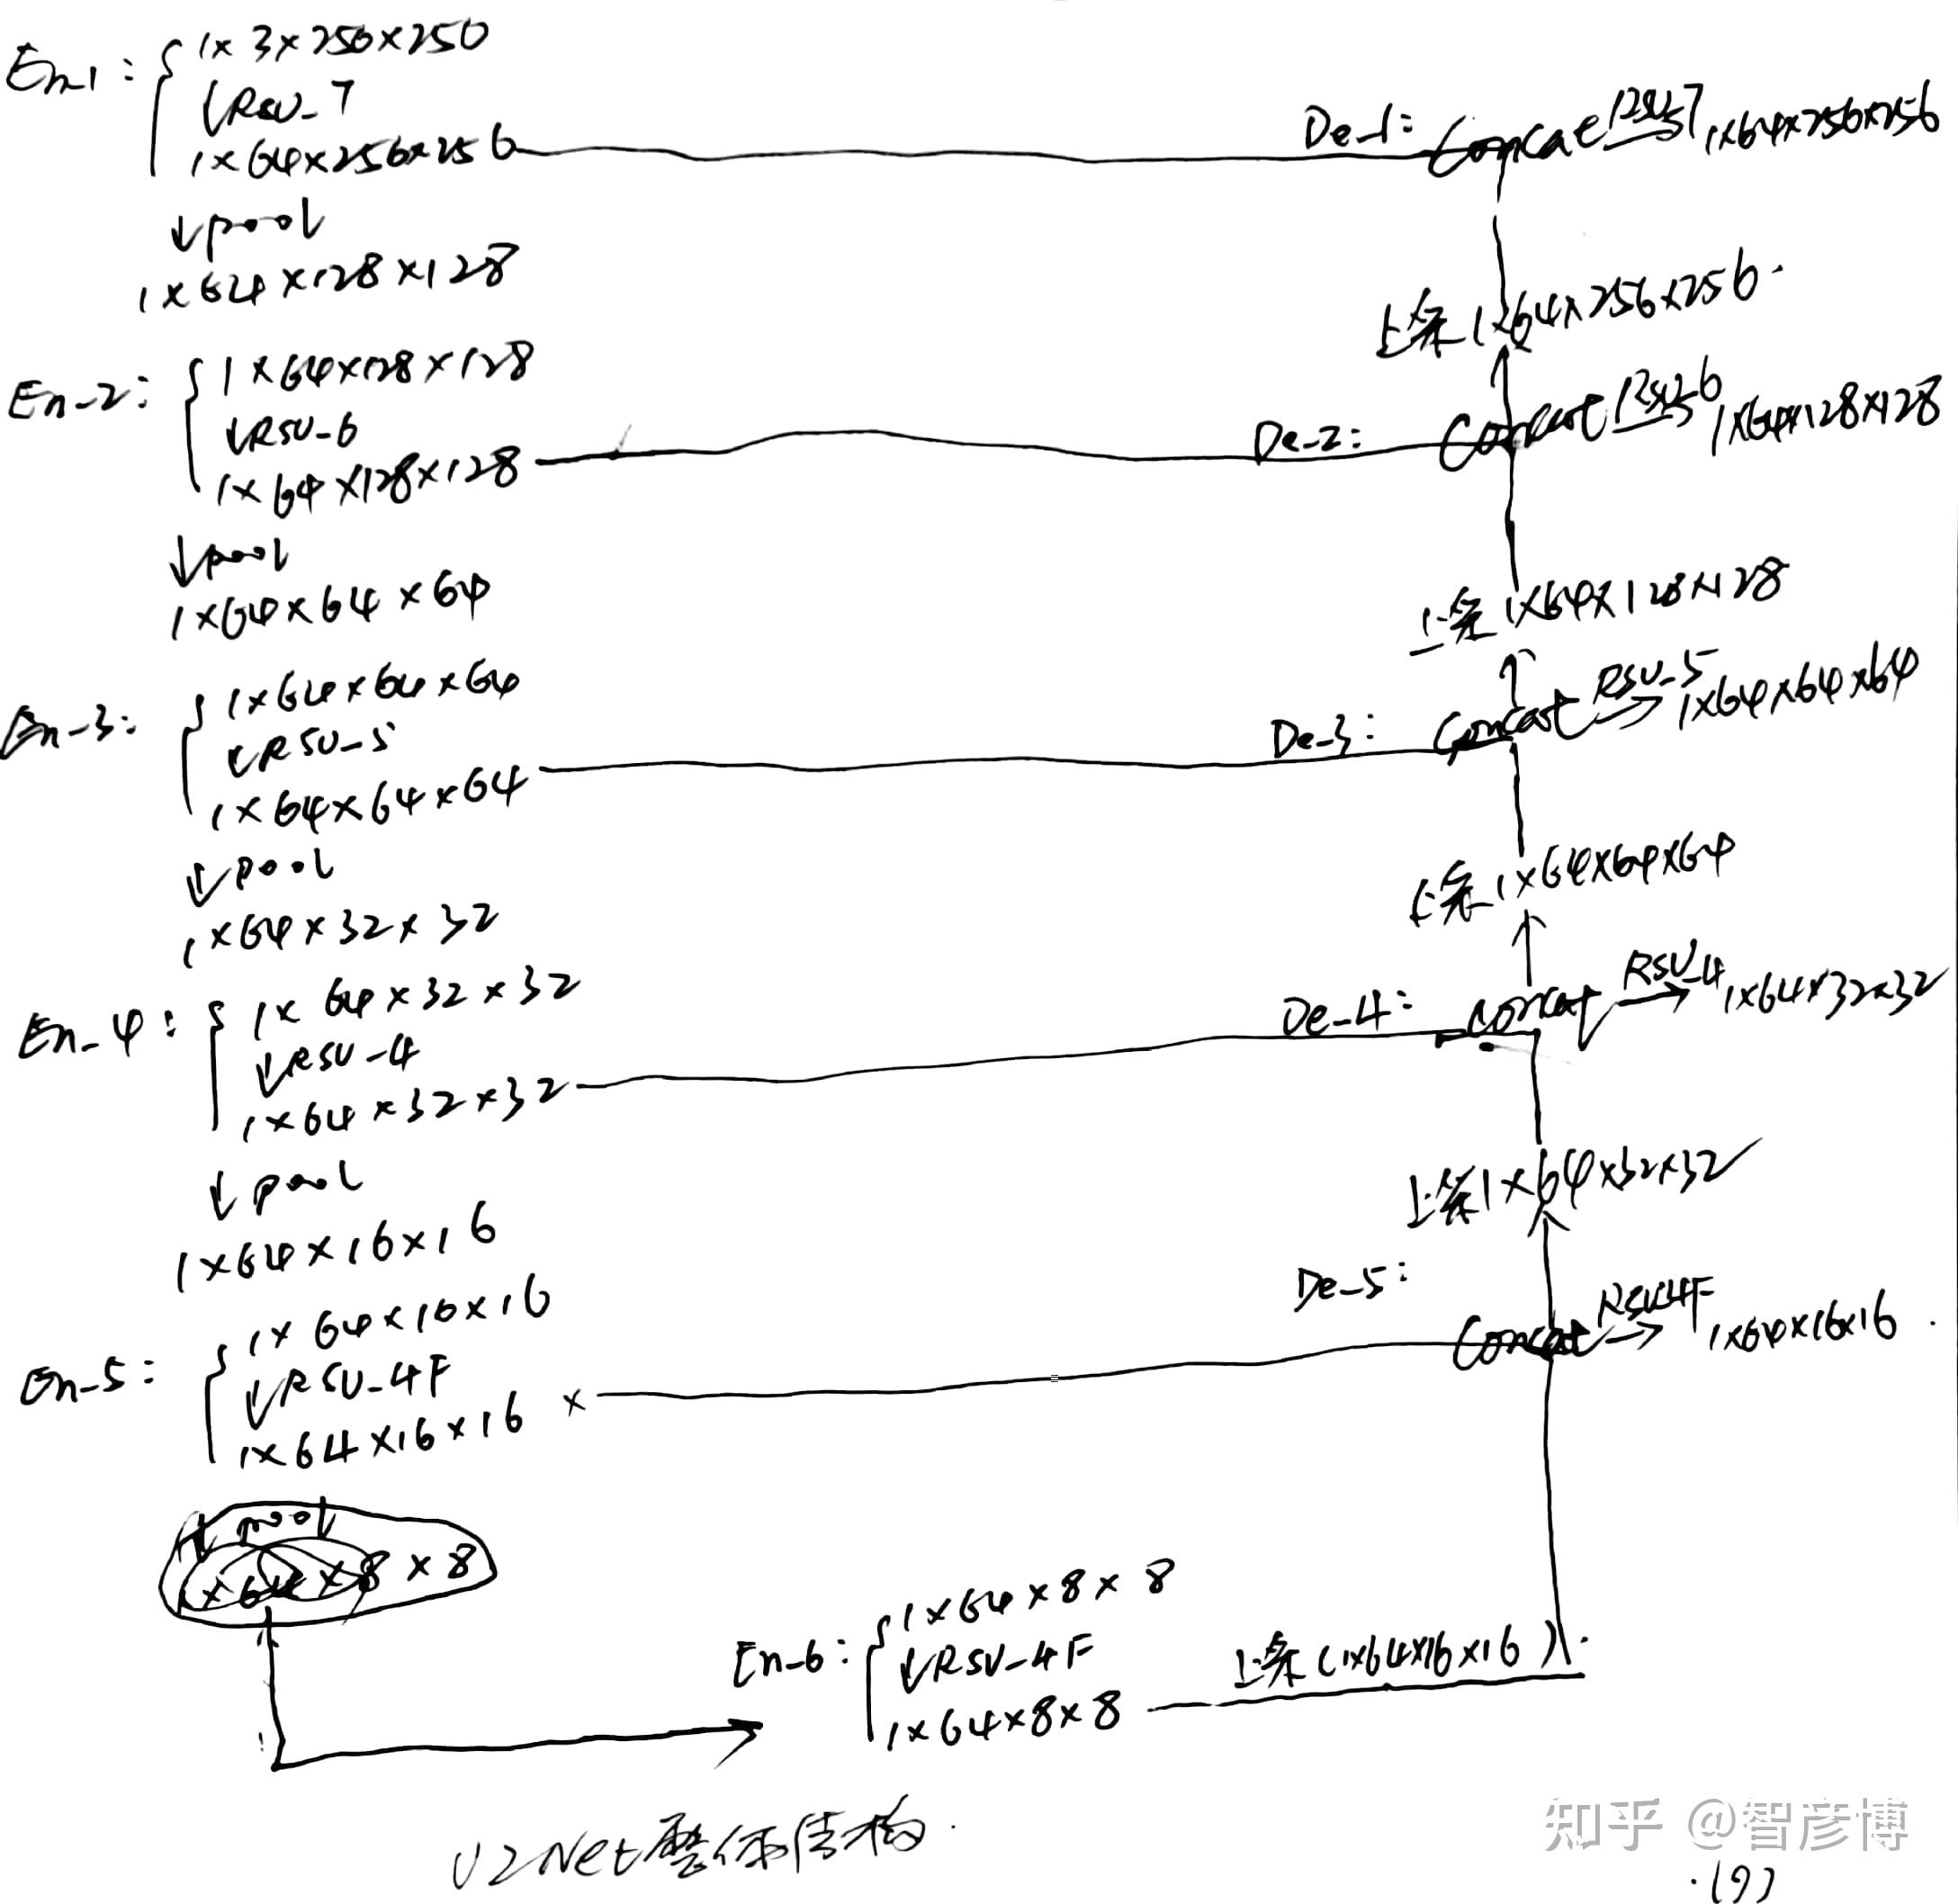 En_1: 1×3×256×256
↓RSU_7
1×64×256×256
↓pool
1×64×128×128
En_2: 1×64×128×128
↓RSU_6
1×64×128×128
↓pool
1×64×64×64
En_3: 1×64×64×64
↓RSU_5
1×64×64×64
↓pool
1×64×32×32
En_4: 1×64×32×32
↓RSU_4
1×64×32×32
↓pool
1×64×16×16
En_5: 1×64×16×16
↓RSU_4F
1×64×16×16 ×
↓pool
1×64×8×8
En_6: 1×64×8×8
↓RSU_4F
1×64×8×8
上采(1×64×16×16)
De_5:
Concat RSU4F→ 1×64×16×16.
上采1×64×32×32
De_4: Concat RSU_4→ 1×64×32×32
上采1×64×64×64
De_3: Concat RSU_5→ 1×64×64×64
上采1×64×128×128
De_2: Concat RSU_6→ 1×64×128×128
上采1×64×256×256.
De_1: Concat RSU_7→ 1×64×256×256
U2Net整体结构.
知乎 @智彦博
(9)